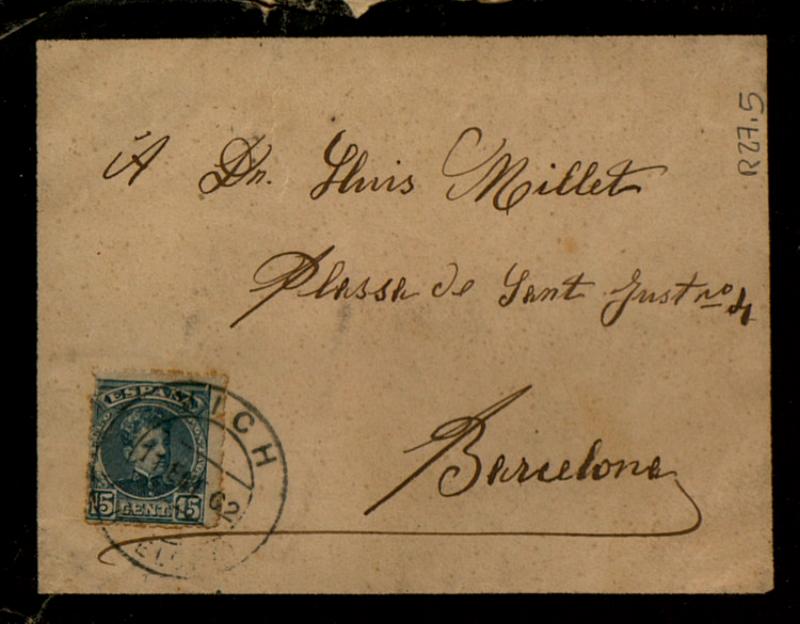 A Dn. Lluis Millet
Plassa de Sant Just nº 4
Barcelona
R27.5
ESPAÑA
15 CENT. 15
ICH
02